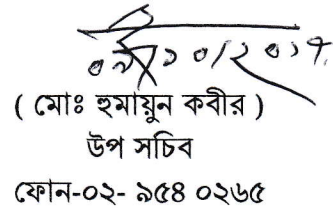 ০৯/১০/২০১৭
( মোঃ হুমায়ুন কবীর )
উপ সচিব
ফোন-০২- ৯৫৪ ০২৬৫